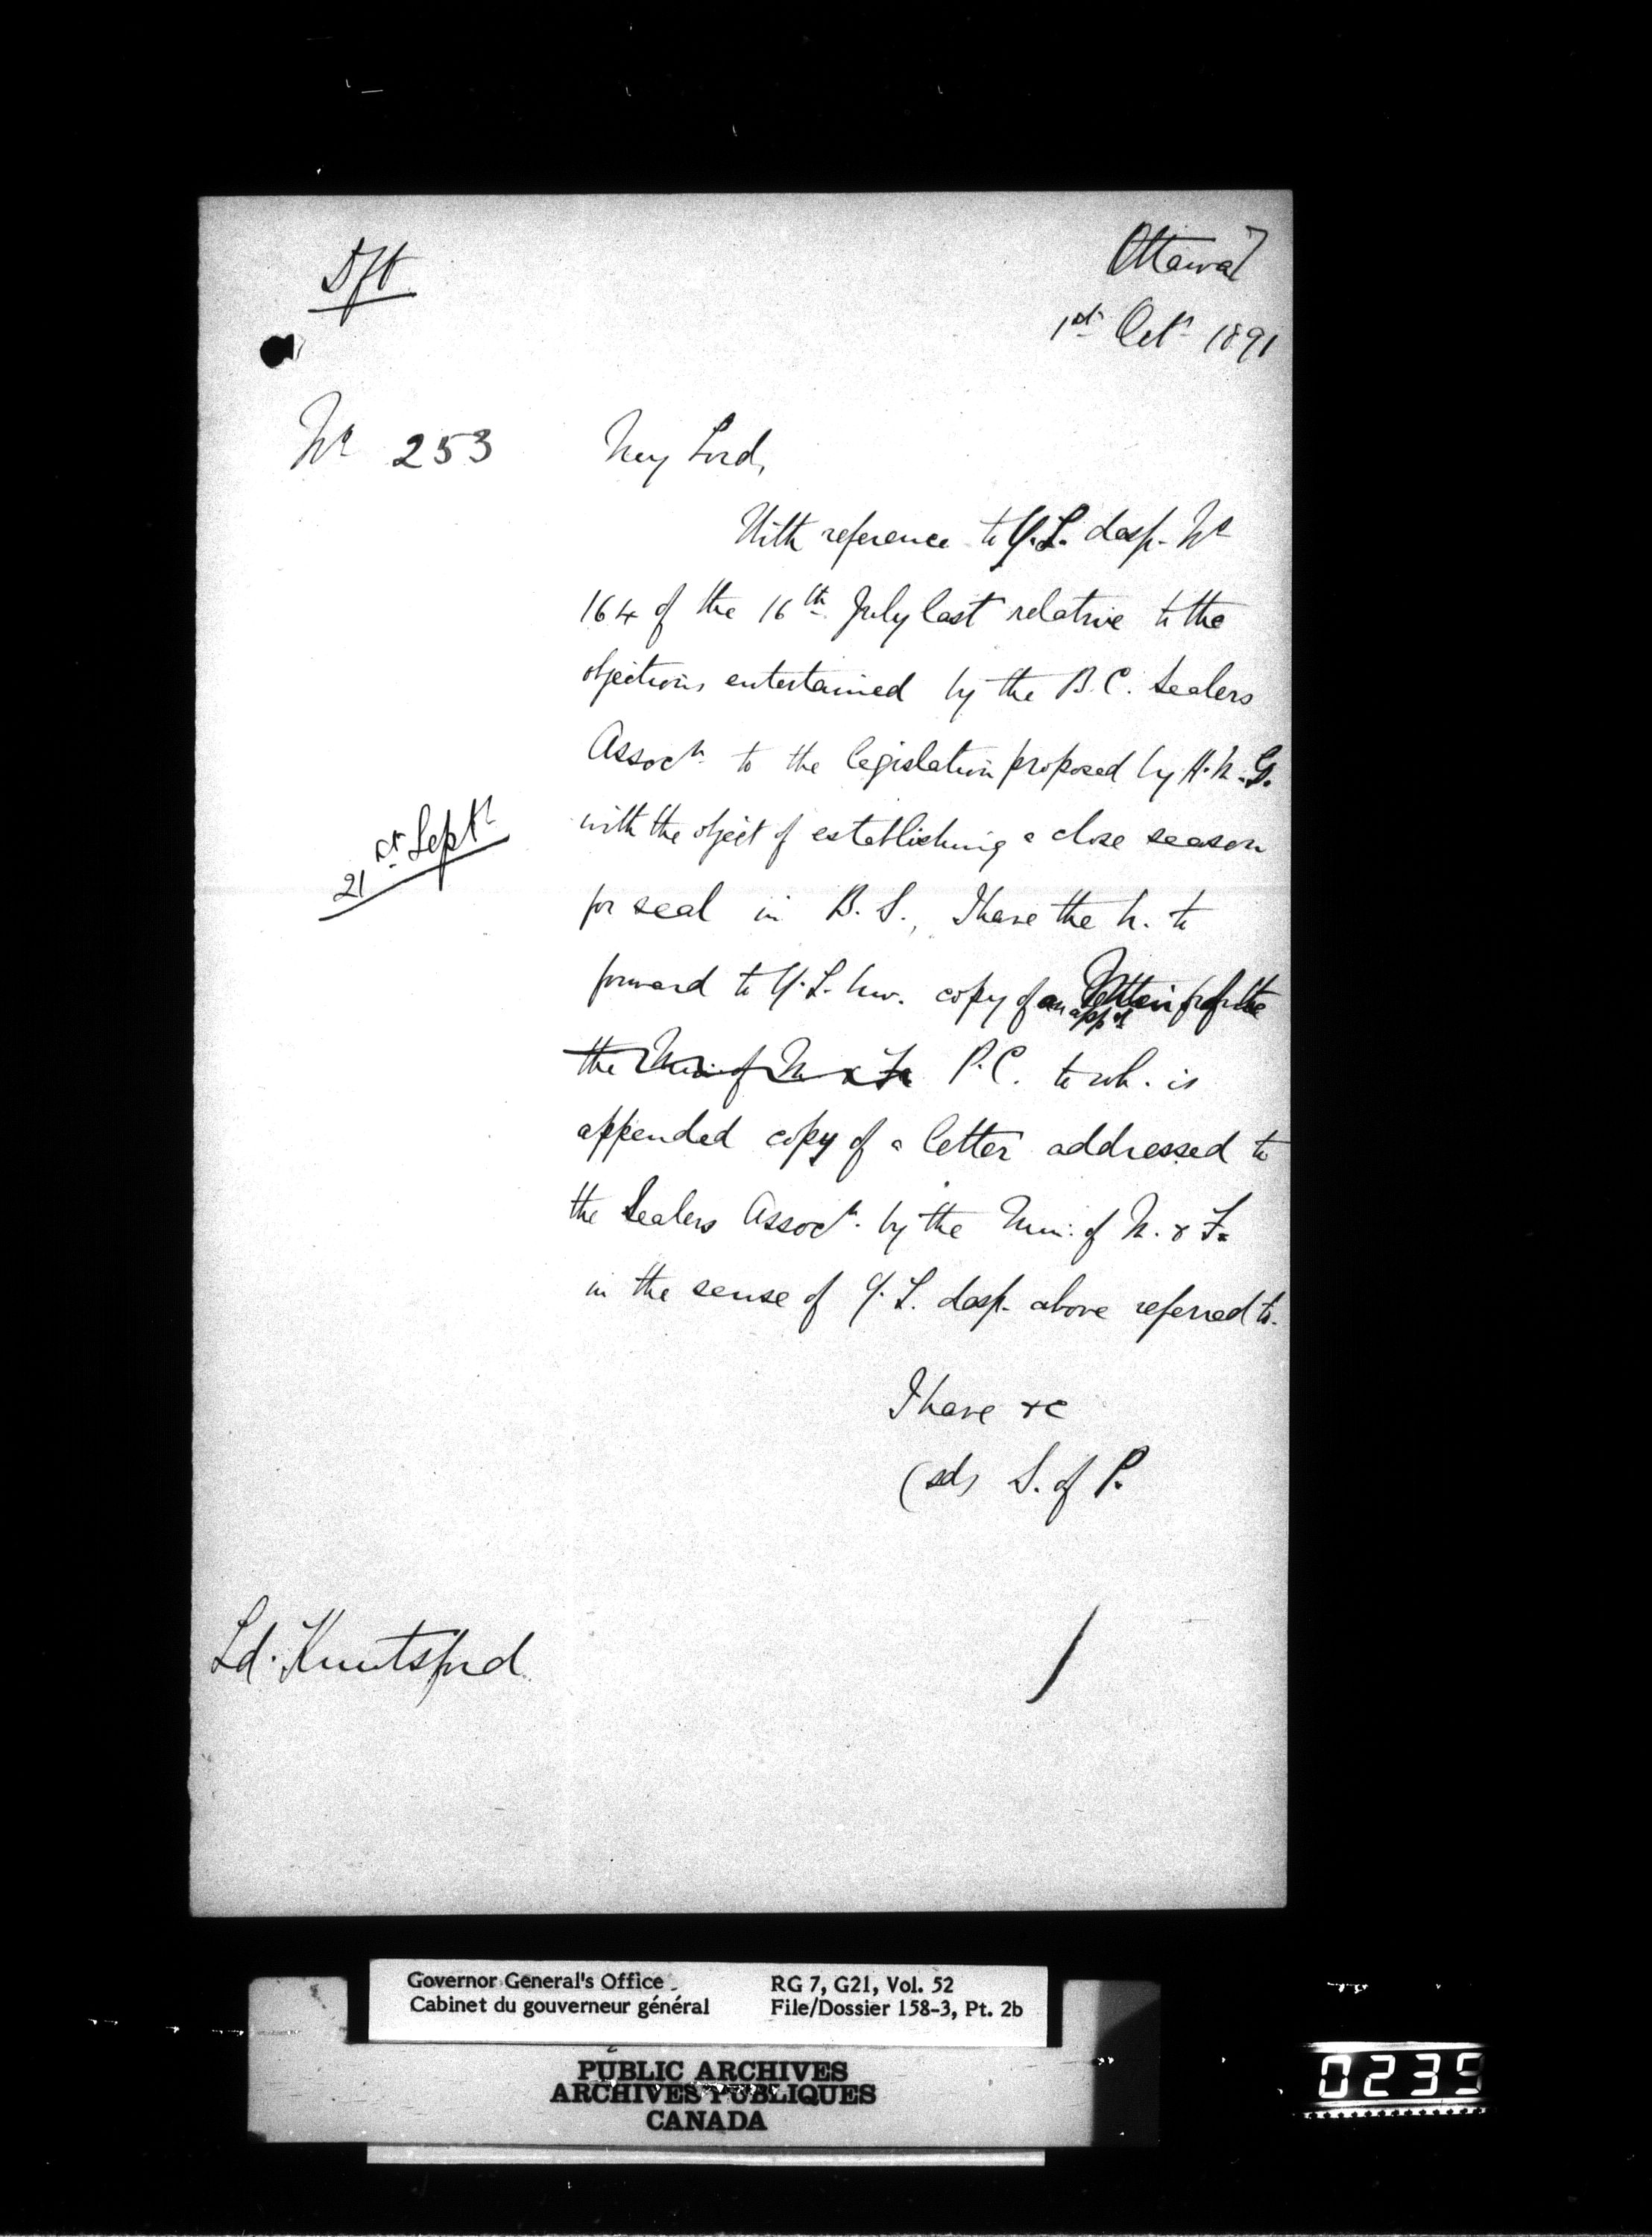 Dft
Ottawa
1st Octr 1891
No 253
My Lord,
With reference to Y.L. desp. No
164 of the 16th July last relative to the
objections entertained by the B.C. Sealers
Assocn to the legislation proposed by H.M.G.
with the object of establishing a close season
21st Septr
for seal in B.S., I have the h. to
forward to Y.L. hw. copy of an app'd of the
the Min of M & F P.C. to wh. is
appended copy of a letter addressed to
the Sealers Assocn. by the Min: of M. & F.
in the sense of Y.L. desp. above referred to.
I have &c
(sd) S. of P.
Ld. Knutsford
Governor General's Office
Cabinet du gouverneur général
RG 7, G21, Vol. 52
File/Dossier 158-3, Pt. 2b
PUBLIC ARCHIVES
ARCHIVES PUBLIQUES
CANADA
0239